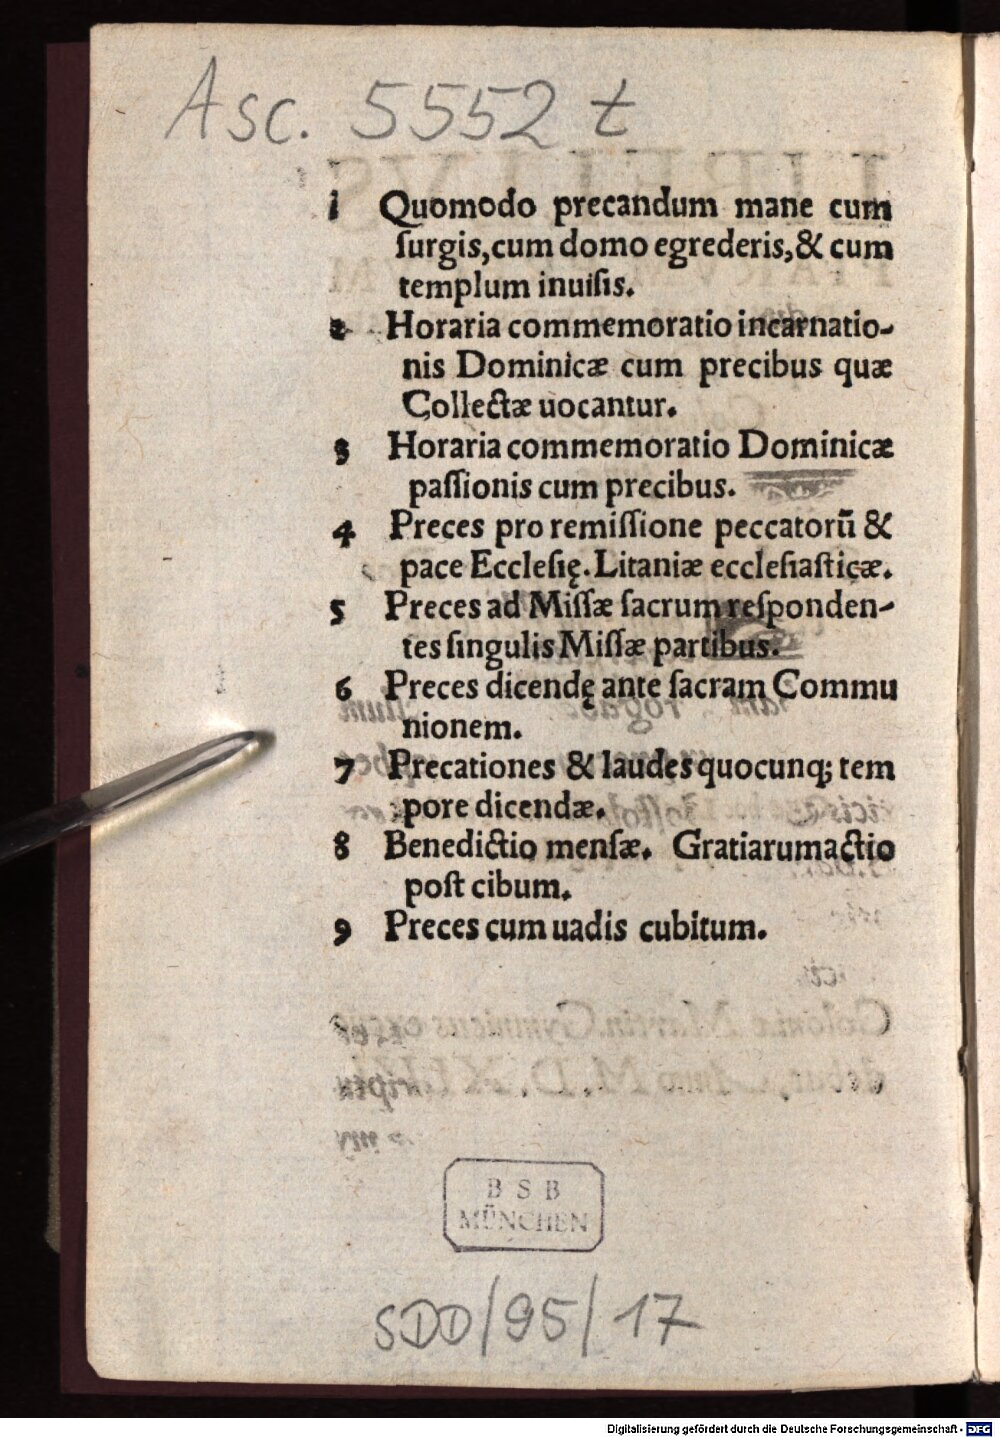 Asc. 5552 t
1 Quomodo precandum mane cum
ſurgis, cum domo egrederis, & cum
templum inuiſis.
2 Horaria commemoratio incarnatio-
nis Dominicæ cum precibus quæ
Collectæ uocantur.
3 Horaria commemoratio Dominicæ
paſſionis cum precibus.
4 Preces pro remiſſione peccatorū &
pace Ecclesię. Litaniæ eccleſiaſticæ.
5 Preces ad Miſſæ ſacrum reſponden-
tes ſingulis Miſſæ partibus.
6 Preces dicendę ante ſacram Commu
nionem.
7 Precationes & laudes quocunq; tem
pore dicendæ.
8 Benedictio menſæ. Gratiarumactio
poſt cibum.
9 Preces cum uadis cubitum.
BSB
MÜNCHEN
SDD/95/17
Digitalisierung gefördert durch die Deutsche Forschungsgemeinschaft - DFG